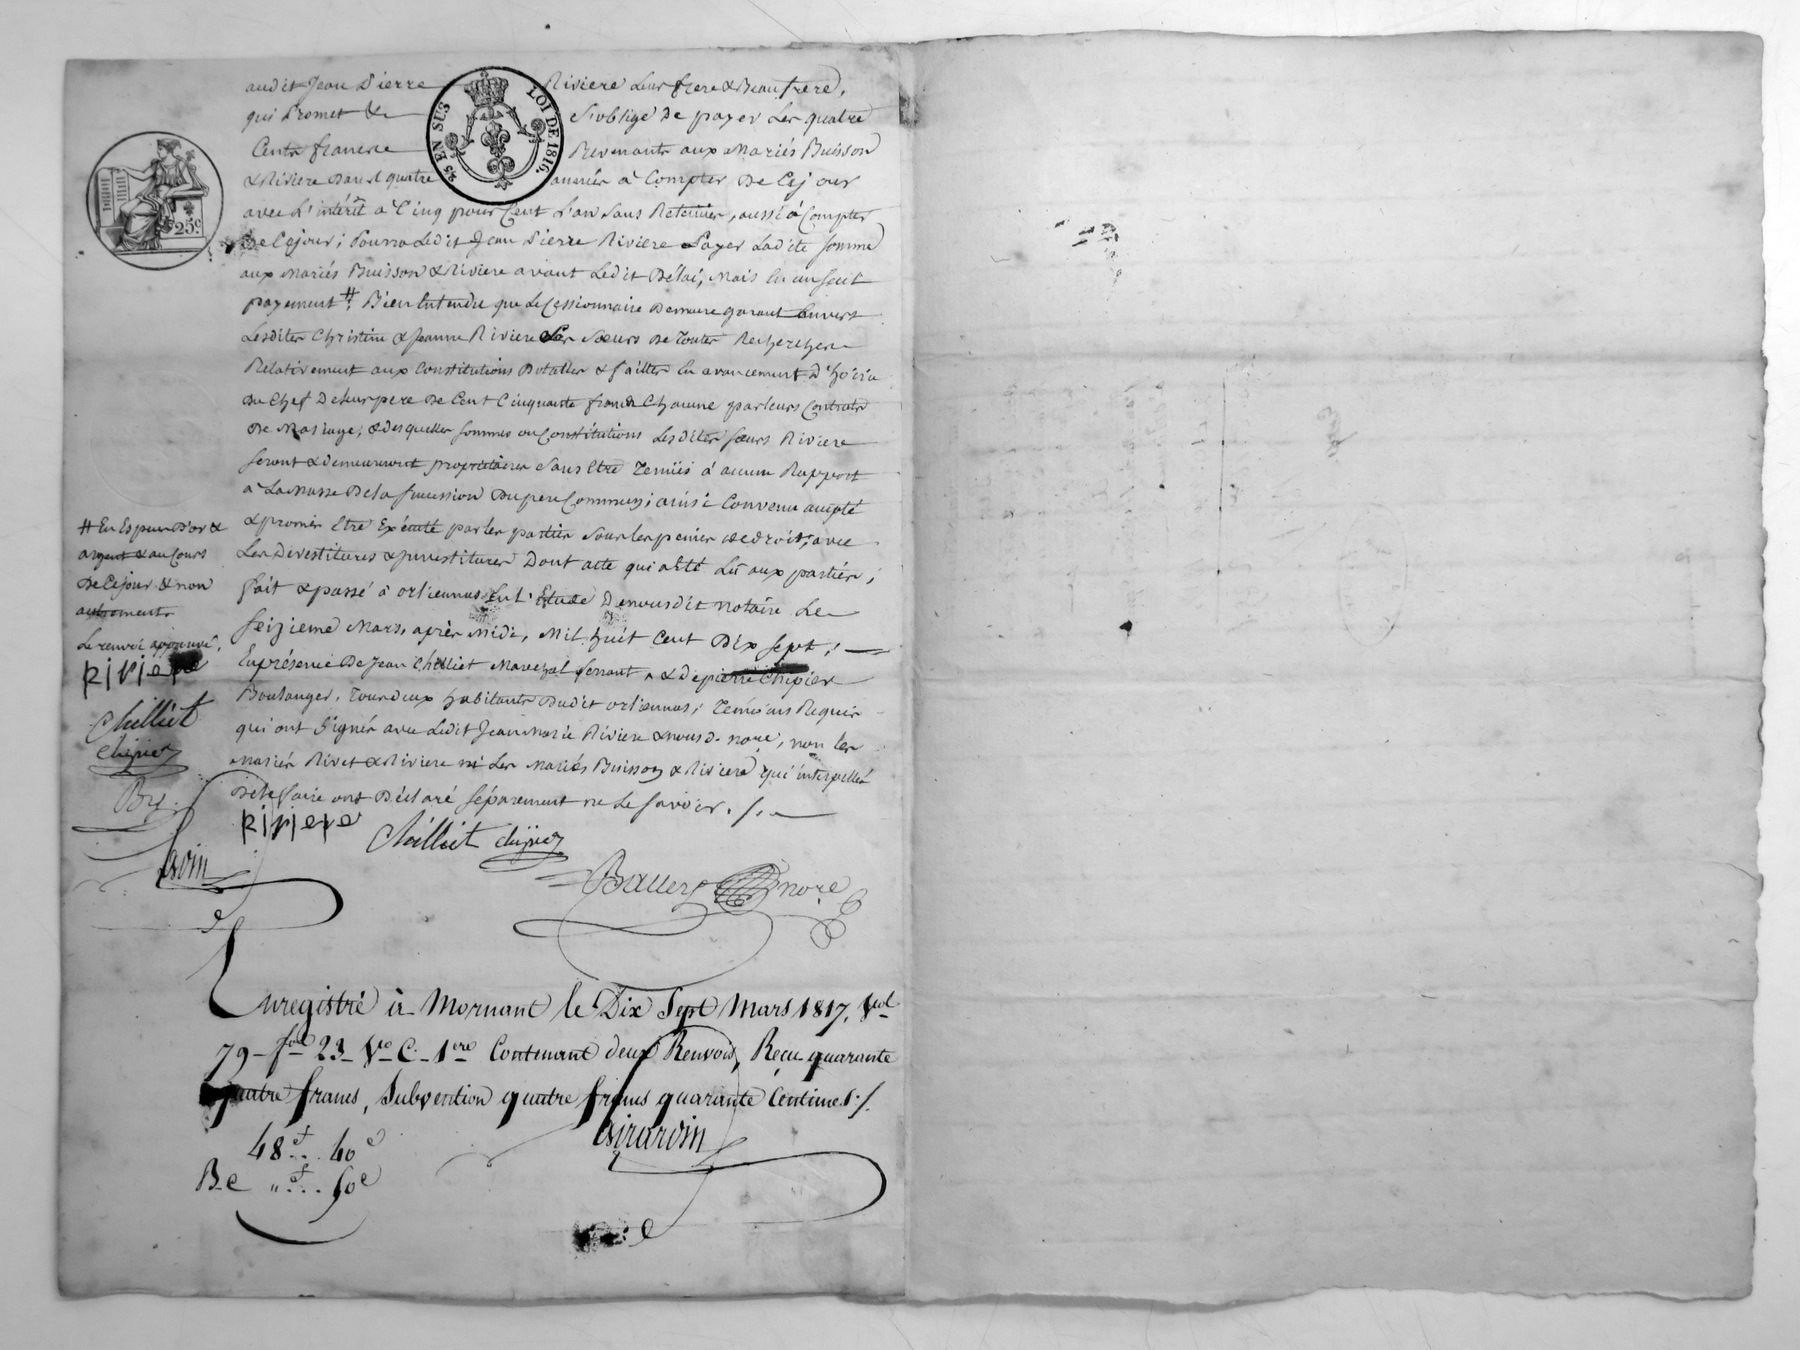 audit Jean Pierre Riviere Leur frere & Beaufrere,
qui Promet & s'oblige De payer Les quatre
Cents francs Revenants aux Mariés Buisson
& Riviere Dans quatre années à Compter De Cejour
avec L'intérêt à Cinq pour Cent L'an sans Retenue, aussi à Compter
De Cejour; Pourra Ledit Jean Pierre Riviere Payer Ladite somme
aux Mariés Buisson & Riviere avant Ledit Délai, Mais En un seul
payement #. Bien Entendu que Le Cessionnaire Demeure garant Envers
Lesdites Christine & Jeanne Riviere Ses Sœurs De Toutes Recherches
Relativement aux Constitutions Dotalles & faittes En avancement D'hoirie
Du Chef De Leur pere De Cent Cinquante francs Chacune par Leurs Contrats
De Mariage, & Desquelles sommes ou Constitutions Lesdites sœurs Riviere
seront & Demeureront propriétaires sans Etre Tenues à aucun Rapport
à La Masse De La succession Du pere Commun; ainsi Convenu accepté
& promis Etre Exécuté par Les parties sous Les peines De Droit, avec
Les Devestitures & Investitures Dont acte qui a Eté Lû aux parties;
fait & passé à orliennas En L'Etude De nousdit notaire Le
seizieme Mars, après Midi, Mil huit Cent Dix sept;
En présence De Jean Chilliet Marechal ferrant, & De pierre Chipier
Boulanger, Tous Deux habitants Dudit orliennas; Témoins Requis
qui ont Signés avec Ledit Jean Marie Riviere & nousd. nore, non Les
Mariés Rivet & Riviere ni Les Mariés Buisson & Riviere qui interpellés
De Le faire ont Déclaré séparement ne Le savoir. /.
# En Especes D'or &
argent & au Cours
De Cejour & non
autrement
Le renvoi approuvé,
riviere
Chilliet
Chipier
riviere Chilliet Chipier
nore
Enregistré à Mornant le Dix Sept Mars 1817, Vol
79 - fol 23 - Vo C. 1ere Contenant deux Renvois, Reçu quarante
quatre francs, Subvention quatre francs quarante Centimes ./.
Girardin
48 f... 40 c
Be " f... 50 c
25 EN SUS
LOI DE 1816.
25c